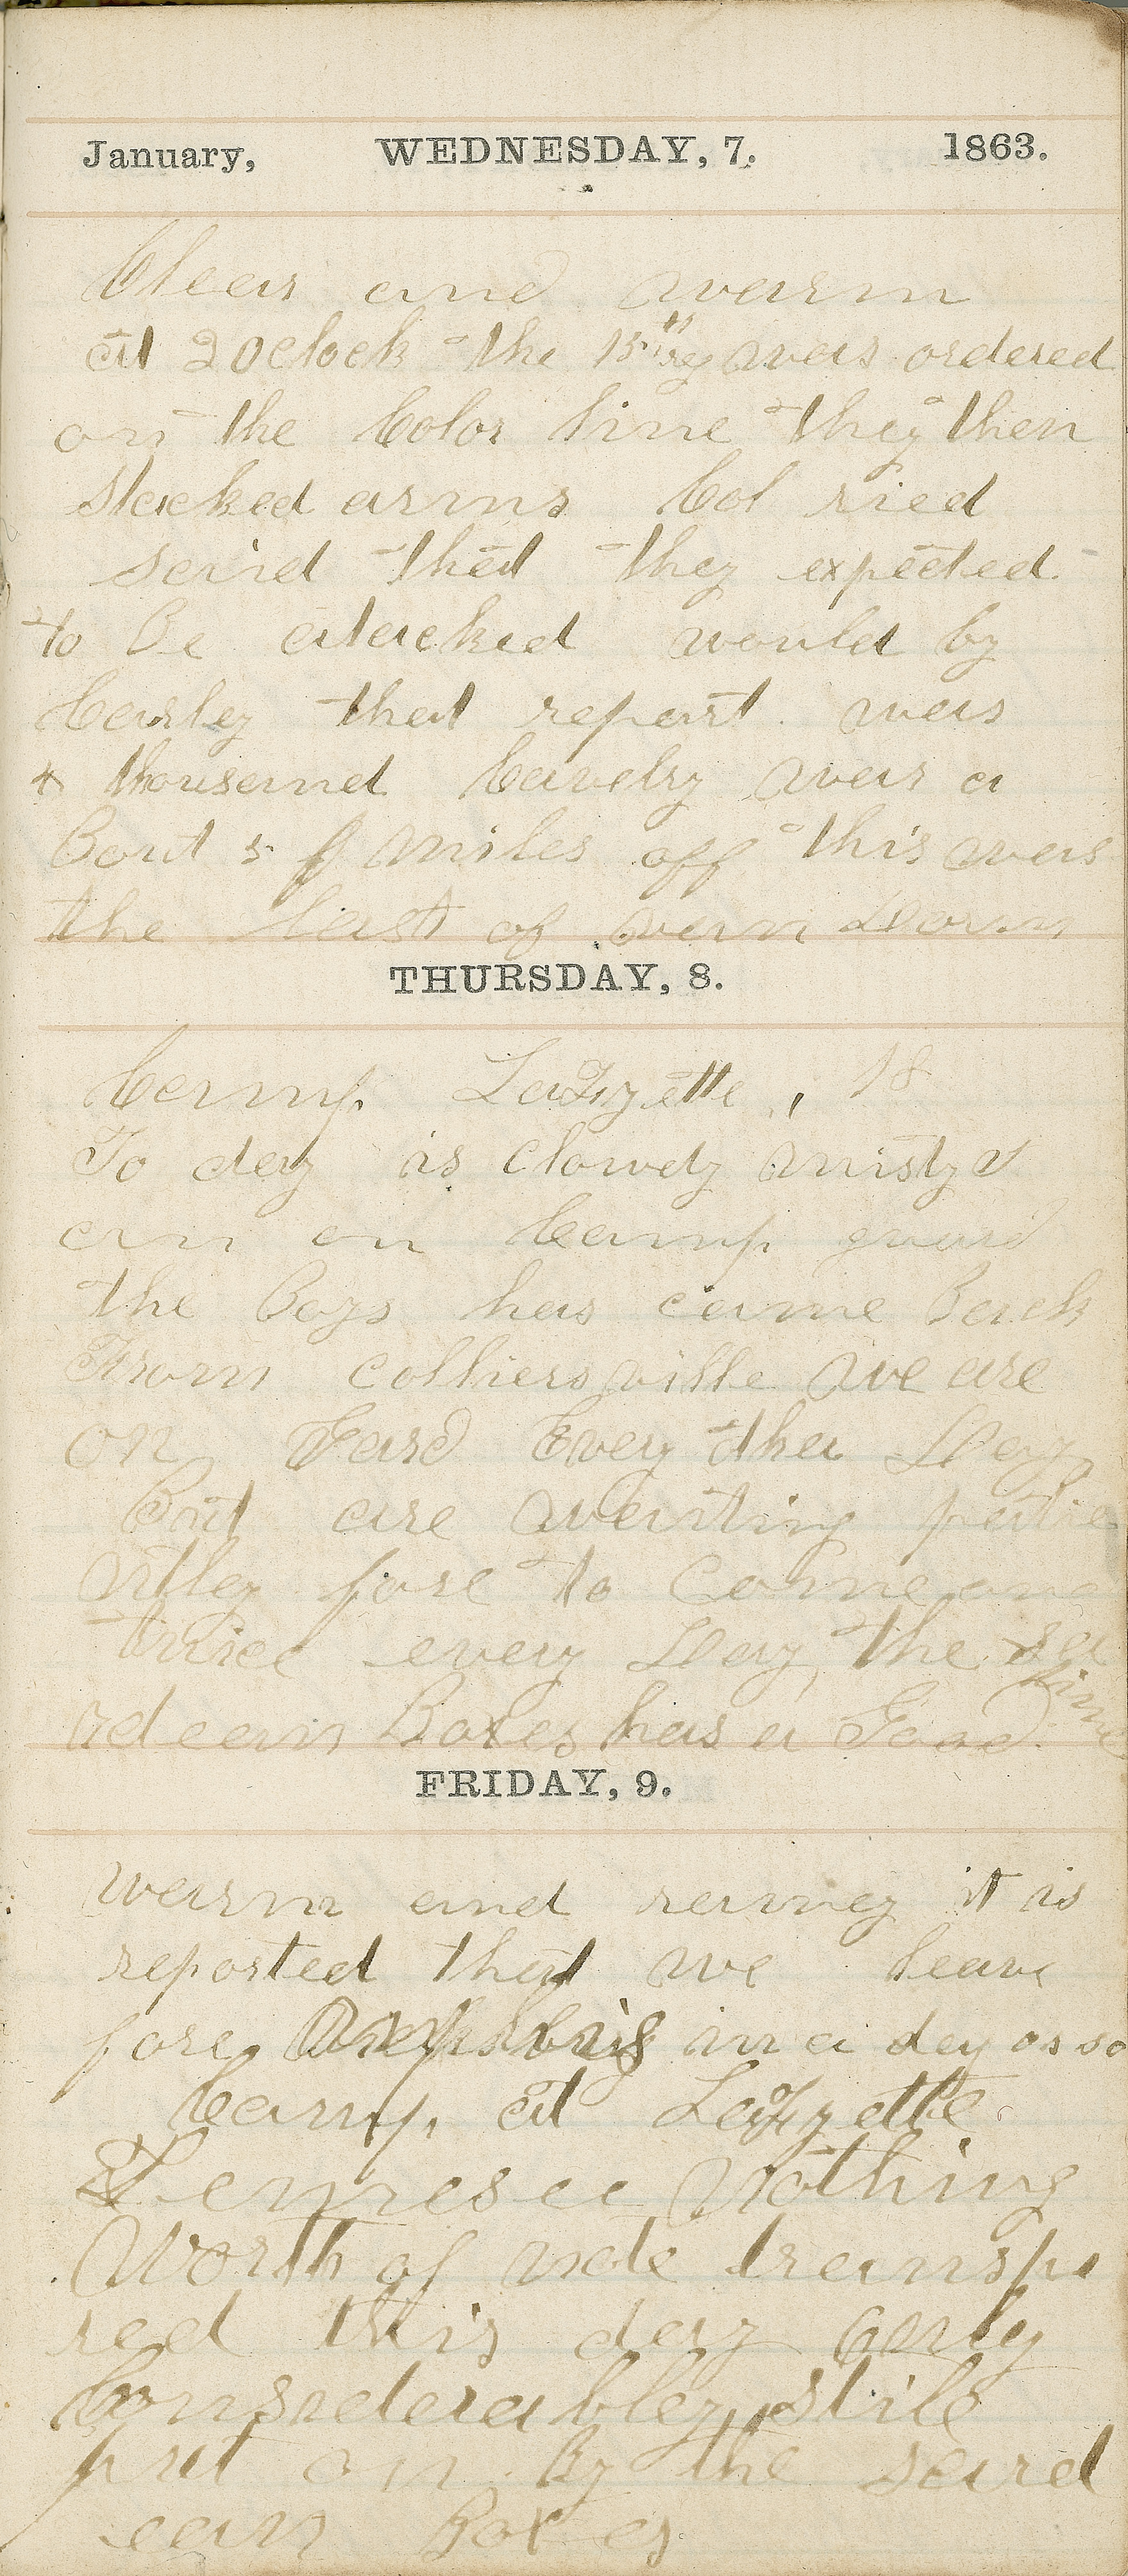 January, WEDNESDAY, 7. 1863.
Clear and warm
at 2 oclock the 15th reg was ordered
on the Color line they then
stacked arms Col ried
said that they expected
to be atacked would by
Earley that report was
4 thousand Cavelry was a
Bout 5 miles off this was
the last of
THURSDAY, 8.
Camp LaFayette, 18
To day is clowdy misty I
am on Camp guard
the Boys has came Back
From colliersville we are
on Gard Every ther Day
But are waiting patie
ntley fore to come one
twice every Day, the sa
rdeean Boxes has a Good time
FRIDAY, 9.
warm and rainey it is
reported that we leave
fore in a day or so
Camp at LaFayette
Tennesee Nothing
Worth of note transpi
red this day only
Considerabley stile
put on By the sard
eean Boxes